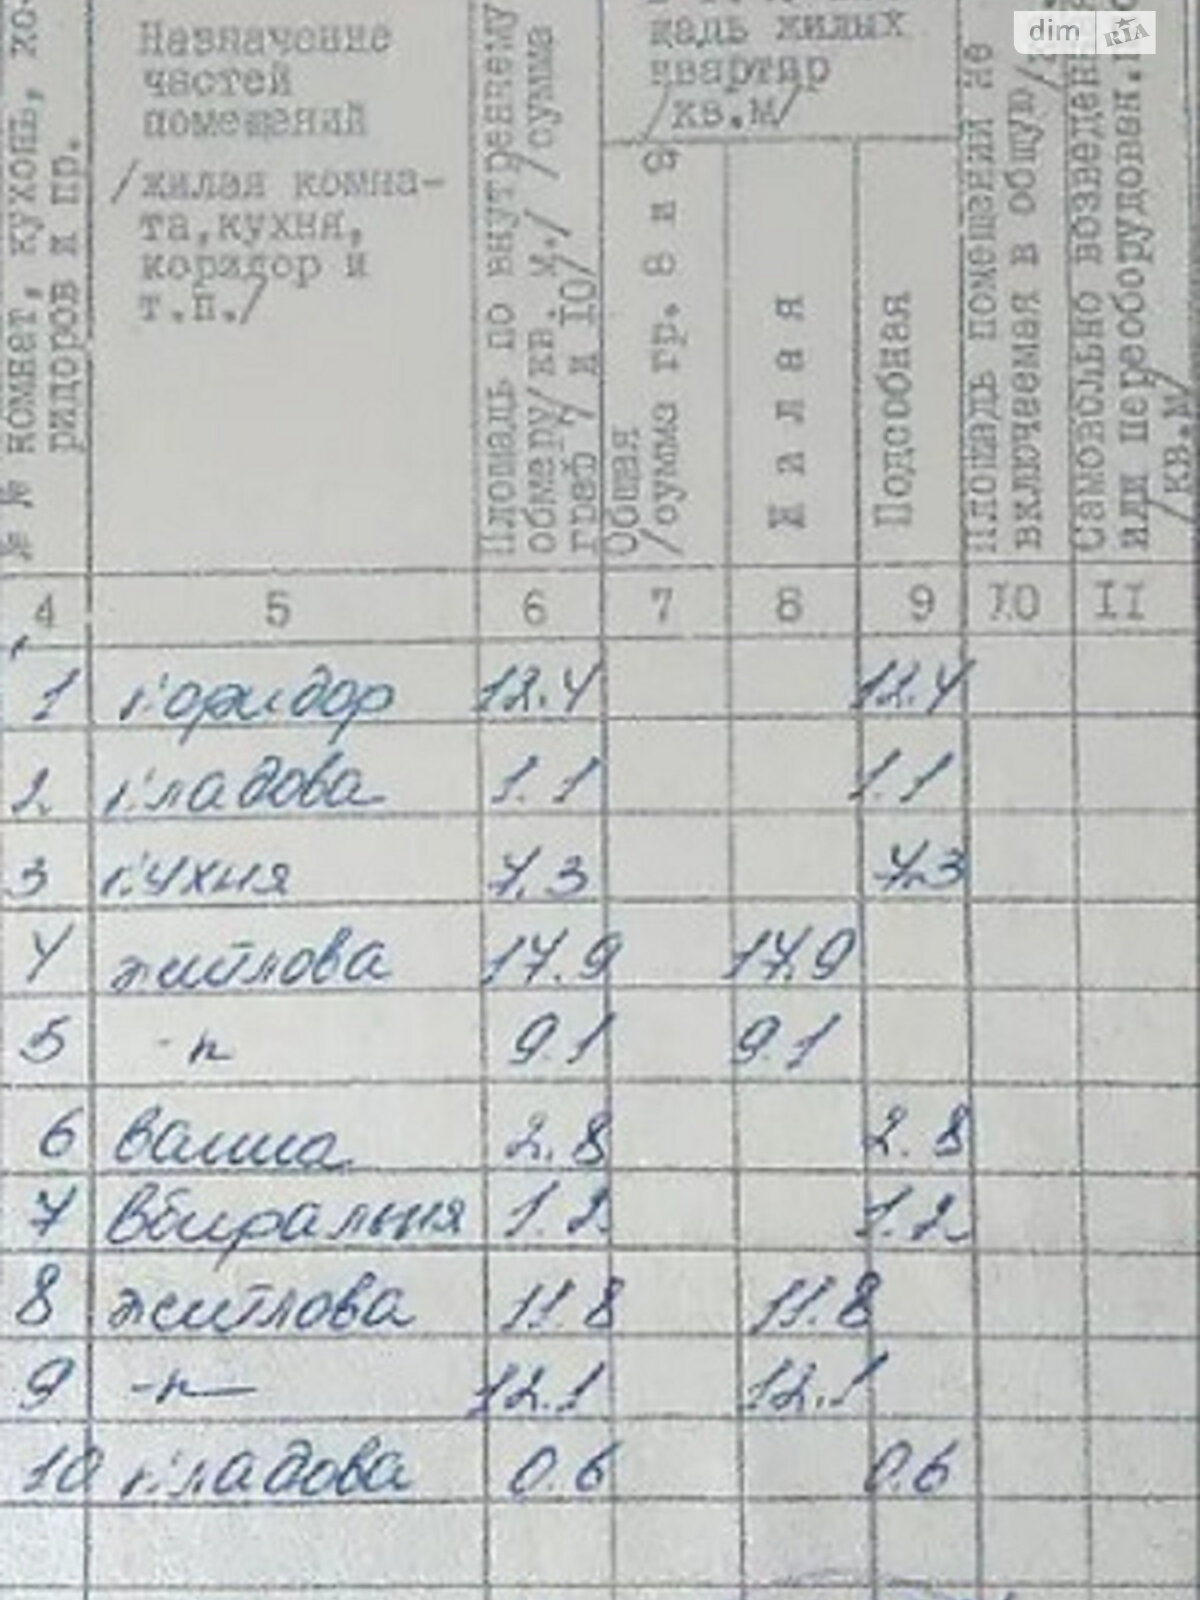 dim RIA
№ № комнат, кухонь, ко-
ридоров и пр.
Назначение
частей
помещений
/жилая комна-
та,кухня,
коридор и
т.п./
Площадь по внутреннему
обмеру/кв.м./ /сумма
граф 7 и 10/
щадь жилых
квартир
/кв.м/
Общая
/сумма гр. 8 и 9
Жилая
Подсобная
Площадь помещений не
включаемая в общую
Самовольно возведен
или переоборудован.
/кв.м/
4 5 6 7 8 9 10 11
1 коридор 12.4 12.4
2. кладова 1.1 1.1
3 кухня 7.3 7.3
4 житлова 17.9 17.9
5 -"- 9.1 9.1
6 ванна 2.8 2.8
7 вбиральня 1.2 1.2
8 житлова 11.8 11.8
9 -"- 12.1 12.1
10 кладова 0.6 0.6